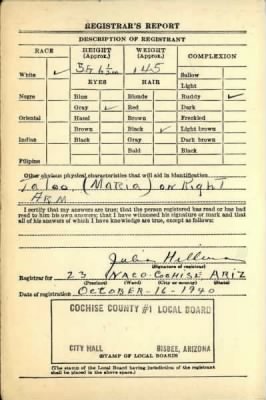 REGISTRAR'S REPORT
DESCRIPTION OF REGISTRANT
RACE HEIGHT (Approx.) WEIGHT (Approx.) COMPLEXION
White ✓ 5 ft 6 ½ in 145 Sallow
EYES HAIR Light
Negro Blue Blonde Ruddy ✓
Gray ✓ Red Dark
Oriental Hazel Brown Freckled
Brown Black ✓ Light brown
Indian Black Gray Dark brown
Bald Black
Filipino
Other obvious physical characteristics that will aid in identification
Tatoo (MARIA) on Right
ARM
I certify that my answers are true; that the person registered has read or has had
read to him his own answers; that I have witnessed his signature or mark and that
all of his answers of which I have knowledge are true, except as follows:
(Signature of registrar)
Registrar for 23 NACO-COCHISE ARIZ
(Precinct) (Ward) (City or county) (State)
Date of registration OCTOBER-16-1940
COCHISE COUNTY #1 LOCAL BOARD
CITY HALL BISBEE, ARIZONA
(STAMP OF LOCAL BOARD)
(The stamp of the Local Board having jurisdiction of the registrant
shall be placed in the above space.)